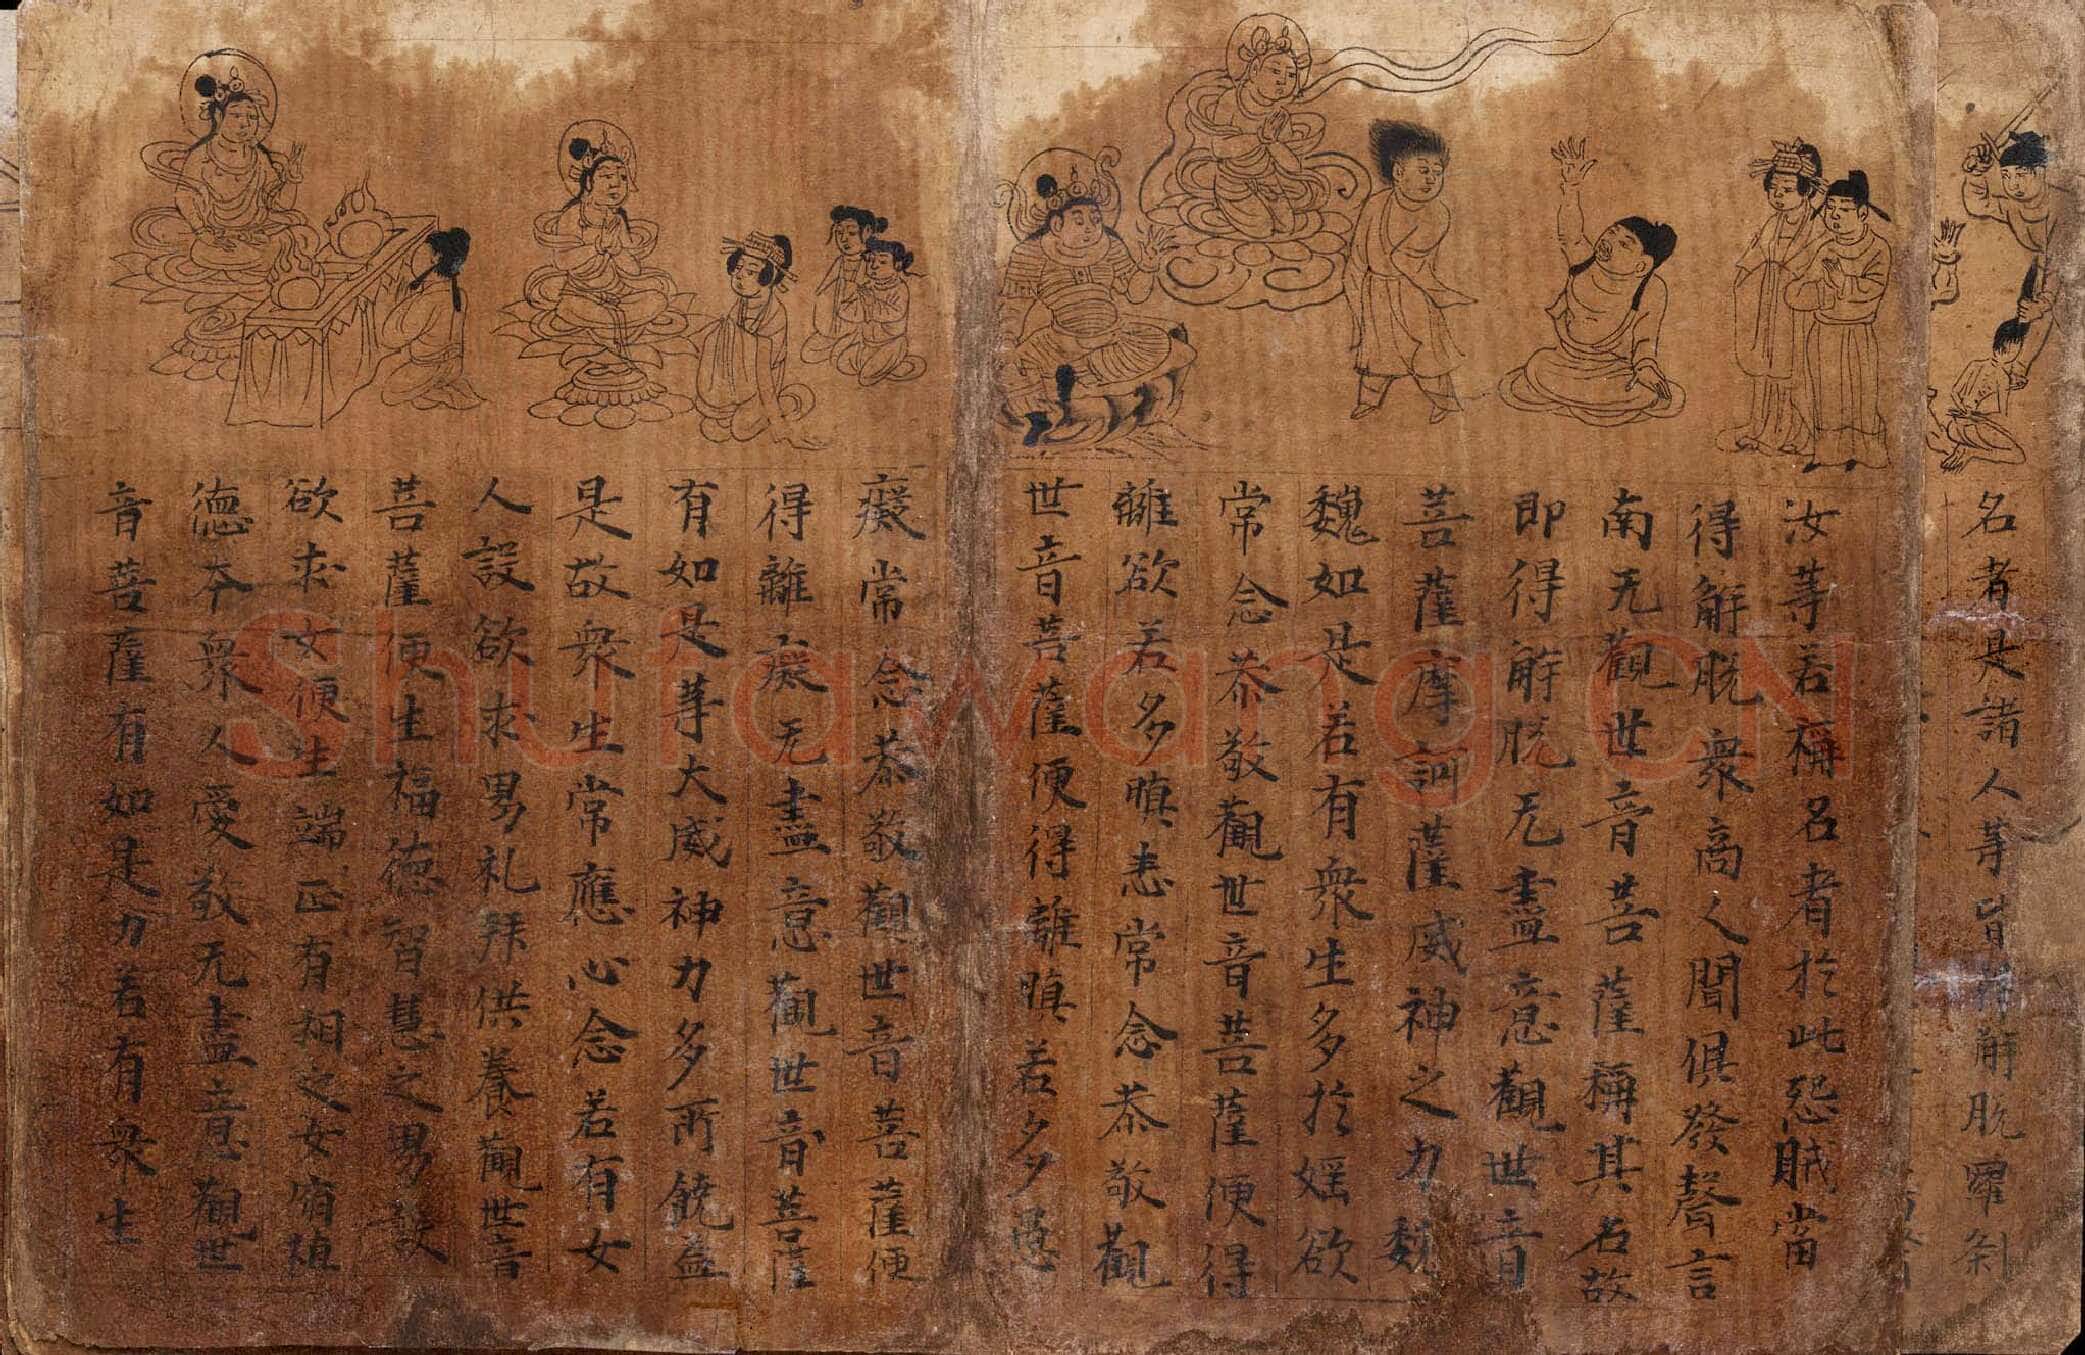 名者是諸人等皆得解脫羅剎
汝等若稱名者於此怨賊當
得解脫眾商人聞俱發聲言
南无觀世音菩薩稱其名故
即得解脫无盡意觀世音
菩薩摩訶薩威神之力巍
巍如是若有衆生多於婬欲
常念恭敬觀世音菩薩便得
離欲若多瞋恚常念恭敬觀
世音菩薩便得離瞋若多愚
癡常念恭敬觀世音菩薩便
得離癡无盡意觀世音菩薩
有如是等大威神力多所饒益
是故衆生常應心念若有女
人設欲求男礼拜供養觀世音
菩薩便生福德智慧之男設
欲求女便生端正有相之女宿植
德本衆人愛敬无盡意觀世
音菩薩有如是力若有衆生
Shufawang.CN